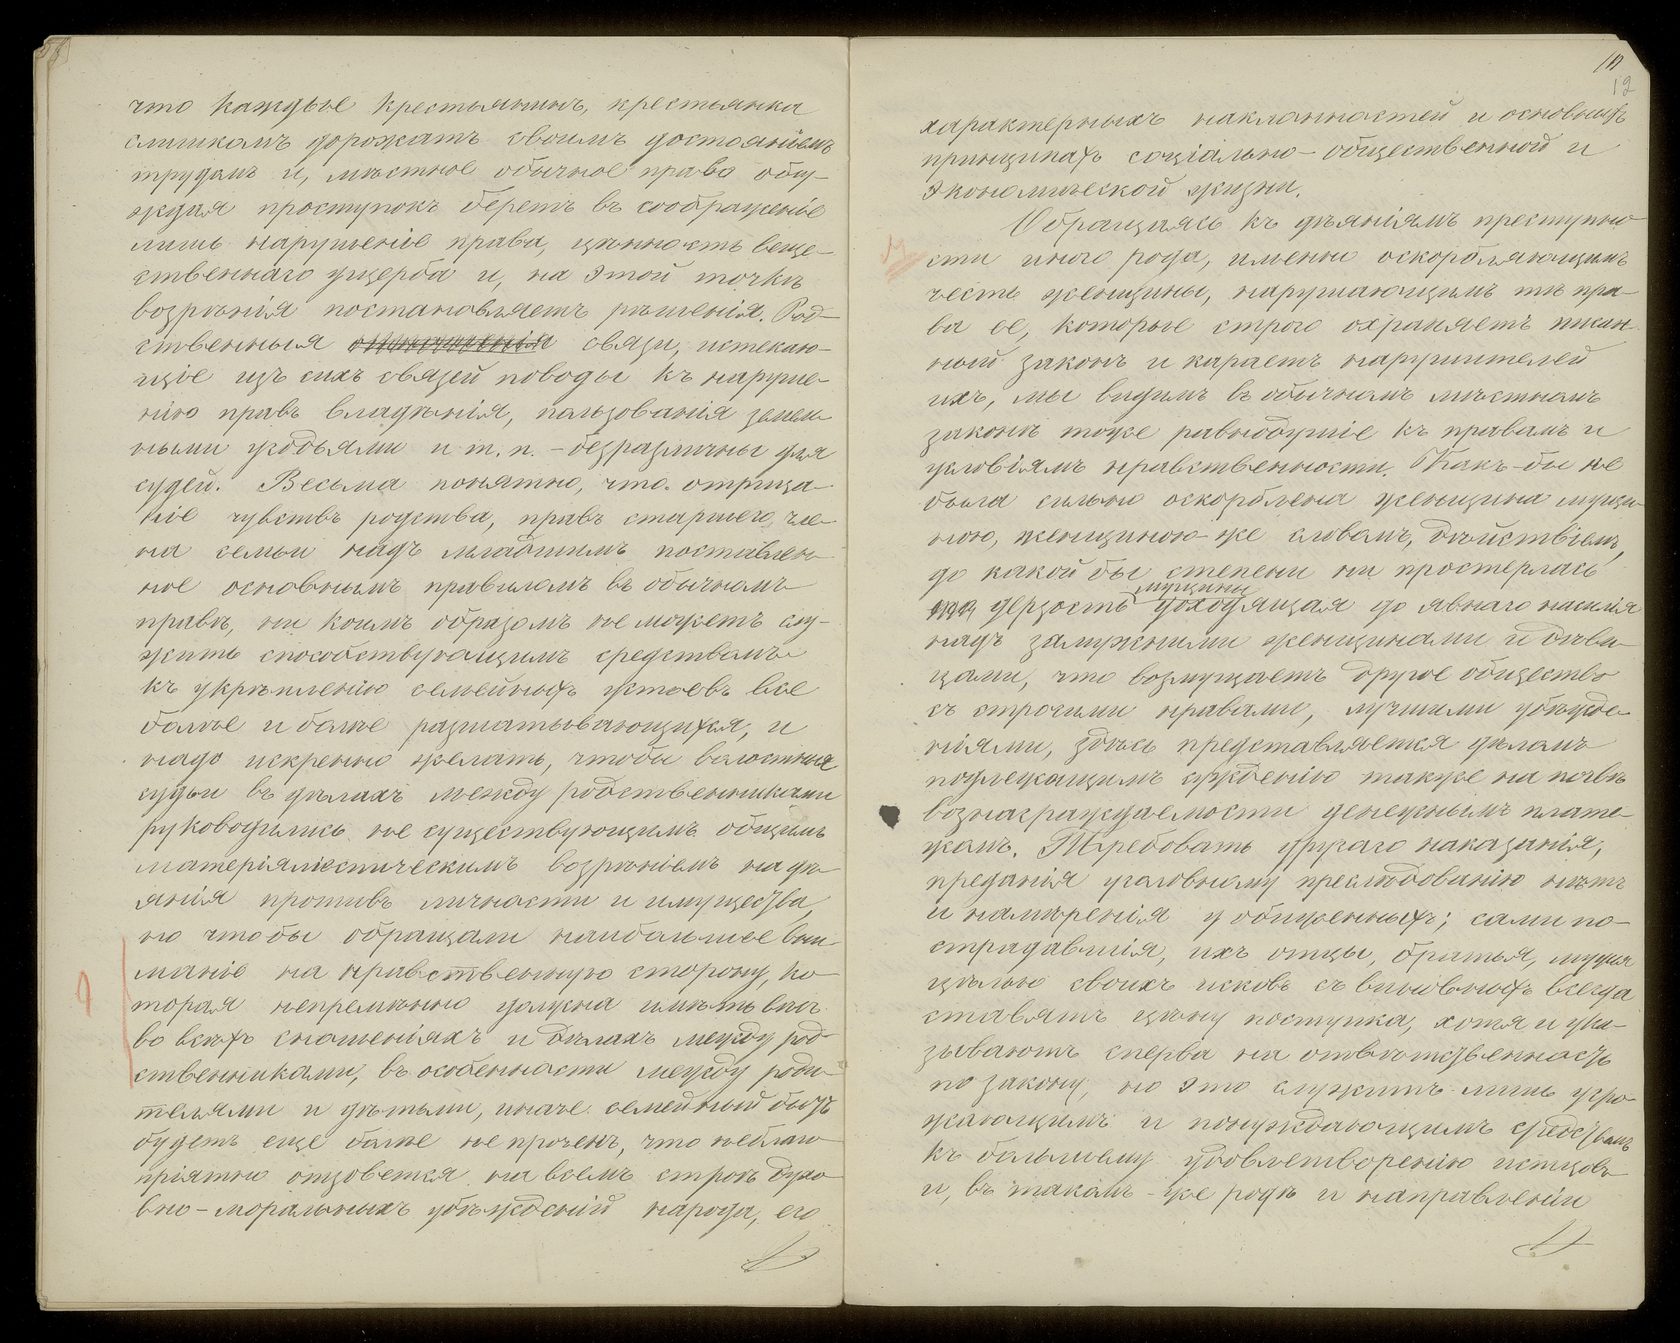 что каждые крестьянинъ, крестьянка
слишкомъ дорожатъ своимъ достоянiемъ
трудомъ и, мѣстное обычное право обсу-
ждая проступокъ беретъ въ соображенiе
лишь нарушенiе права, цѣнность веще-
ственнаго ущерба и, на этой точкѣ
возрѣнiя постановляетъ рѣшенiя. Род-
ственныя отношенiя связи, истекаю-
щiе изъ сихъ связей поводы къ наруше-
нiю правъ владѣнiя, пользованiя земель-
ными угодьями и т. п. – безразличны для
судей. Весьма понятно, что отрица-
нiе чувствъ родства, правъ старшего, чле-
на семьи надъ младшимъ поставлен-
ное основнымъ правиломъ въ обычномъ
правѣ, ни коимъ образомъ не можетъ слу-
жить способствующимъ средствомъ
къ укрѣпленiю семейныхъ устоевъ все
болѣе и болѣе разшатывающихся, и
надо искренно желать, чтобы волостные
судьи въ дѣлахъ между родственниками
руководились не существующимъ общимъ
матерiялистическимъ возрѣнiемъ на дѣ-
янiя противъ личности и имущества,
но чтобы обращали наибольшее вни-
манiе на нравственную сторону, ко-
торая непремѣнно должна имѣть вѣсъ
во всѣхъ сношенiяхъ и дѣлахъ между род-
ственниками, въ особенности между роди-
телями и дѣтьми, иначе семейный бытъ
будетъ еще болѣе не проченъ, что неблаго-
прiятно отзовется на всемъ строѣ духо-
вно-моральныхъ убѣжденiй народа, его
12
характерныхъ наклонностей и основныхъ
принципахъ соцiально-общественной и
экономической жизни.
Обращаясь къ дѣянiямъ преступно-
сти иного рода, именно оскорбляющимъ
честь женщины, нарушающимъ тѣ пра-
ва ее, которые строго охраняетъ писан-
ный законъ и караетъ нарушителей
ихъ, мы видимъ въ обычномъ мѣстномъ
законѣ тоже равнодушiе къ правамъ и
условiямъ нравственности. Какъ-бы не
была сильно оскорблена женщина мущи-
ною, женщиною-же словомъ, дѣйствiемъ,
до какой бы степени ни простерлась
мущины
дерзость доходящая до явнаго насилiя
надъ замужними женщинами и дѣви-
цами, что возмущаетъ другое общество
съ строгими нравами, лучшими убѣжде-
нiями, здѣсь представляется дѣломъ
подлежащимъ сужденiю также на почвѣ
вознаграждаемости денежнымъ плате-
жомъ. Требовать другаго наказанiя,
преданiя уголовному преслѣдованiю нѣтъ
и намѣренiя у обиженныхъ; сами по-
страдавшiя, ихъ отцы, братья, мужья
цѣлью своихъ исковъ съ виновныхъ всегда
ставятъ цѣну поступка, хотя и ука-
зываютъ сперва на отвѣтственность
по закону, но это служитъ лишь угро-
жающимъ и понуждающимъ средствомъ
къ большему удовлетворенiю истцовъ
и, въ такомъ-же родѣ и направленiи